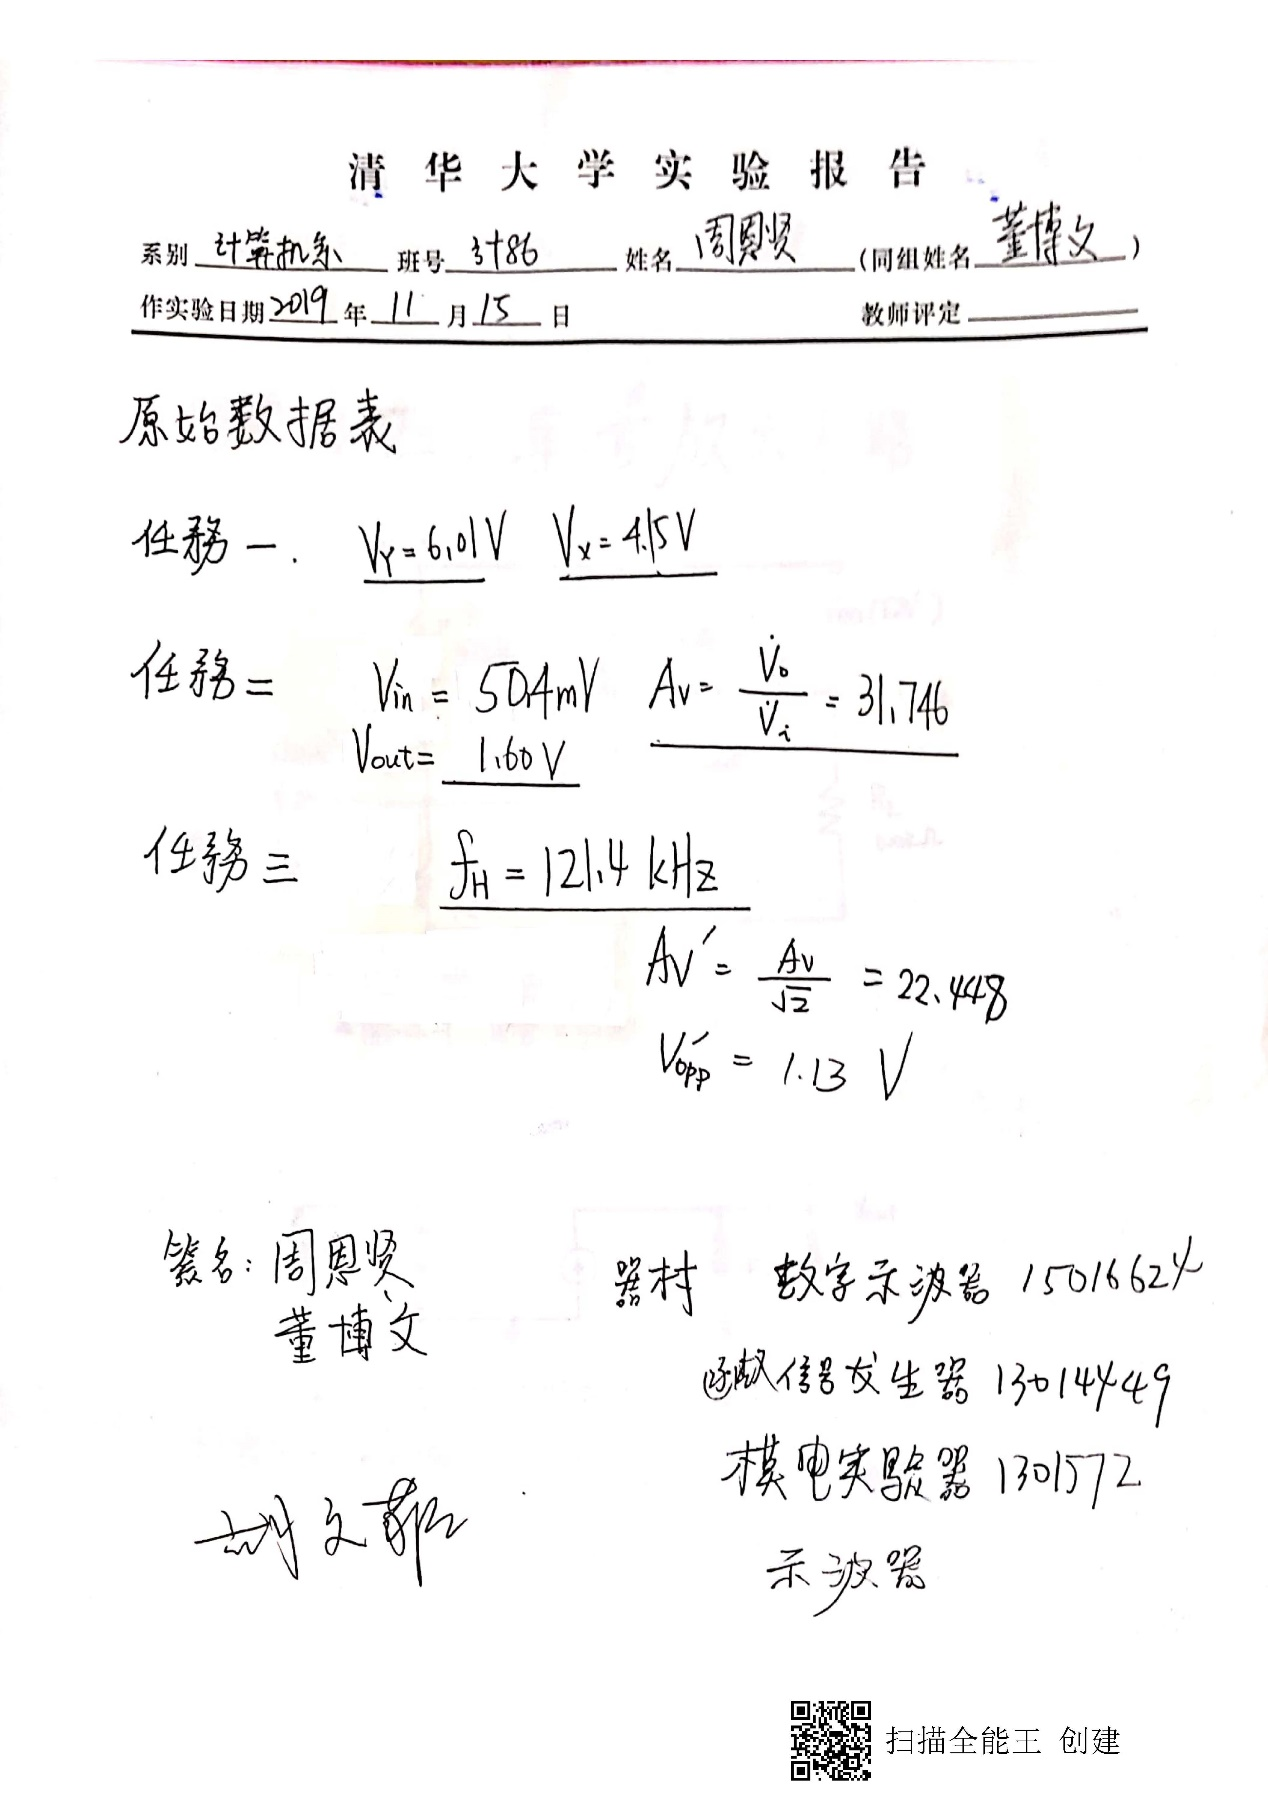 清华大学实验报告
系别 计算机系 班号 计86 姓名 周恩贤 (同组姓名 董博文)
作实验日期 2019 年 11 月 15 日 教师评定
原始数据表
任務一. VY=6.01V Vx=4.15V
任務二 Vin = 50.4mV Av= V̇o/V̇i = 31.746
Vout= 1.60V
任務三 fH = 121.4 kHz
Av′ = Av/√2 = 22.448
Vopp′ = 1.13 V
簽名: 周恩贤
董博文
器材 数字示波器 15016624
函数信号发生器 13014449
模电实驗器 1301572
示波器
胡文
扫描全能王 创建